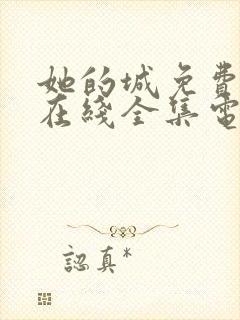 她的城免費
在綫全集電
認真*